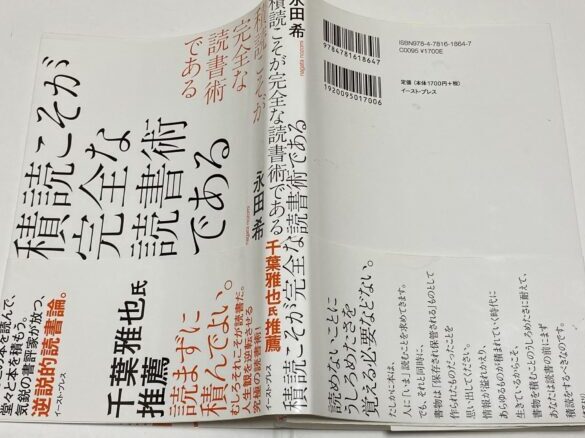 積読こそが
完全な
読書術
である
積読こそが
完全な
読書術
である
永田希
nagata nozomi
積読こそが完全な読書術である
永田希
nagata nozomi
ISBN978-4-7816-1864-7
C0095 ¥1700E
定価(本体1700円+税)
イースト・プレス
9784781618647
1920095017006
千葉雅也氏
推薦
読まずに
積んでよい。
むしろそれこそが読書だ。
人生観を逆転させる
究極の読書術!
堂々と本を積もう。
気鋭の書評家が放つ、
逆説的読書論。
イースト・プレス
積読こそが完全な読書術である
千葉雅也氏推薦
イースト・プレス
読めないことに
うしろめたさを
覚える必要などない。
たしかに本は、
人に「いま」読むことを求めてきます。
でも、それと同時に、
書物は「保存され保管される」ものとして
作られたものだったことを
思い出してください。
情報が溢れかえり、
あらゆるものが積まれていく時代に
生きているからこそ、
書物を積むことのうしろめたさに耐えて、
あなたは読書の前にまず
積読をするべきなのです。